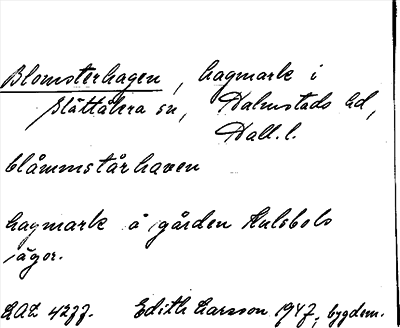 Blomsterhagen, hagmark i
Slättåkra sn, Halmstads hd,
Hall. l.
blåmmstårhaven
hagmark å gården Hulsbols
ägor.
LAL 4277. Edith Larsson 1947, bygdem.